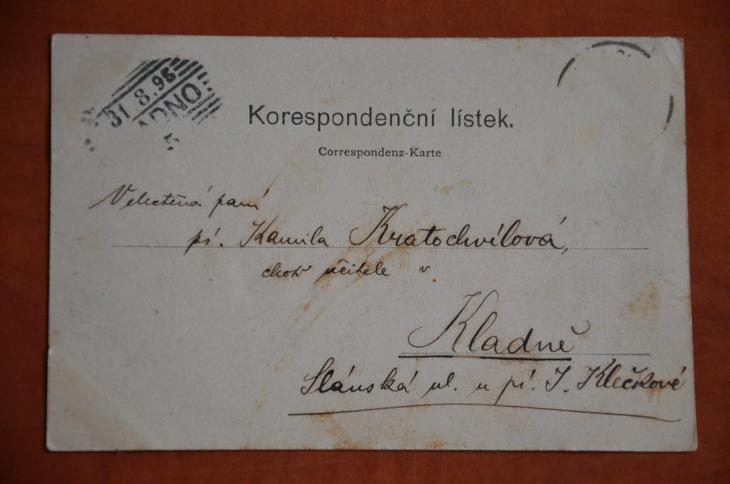 31.8.98
ADNO
5
Korespondenční lístek.
Correspondenz-Karte
Velectěná paní
pí. Kamila Kratochvílová,
choť učitele v
Kladně
Slánská ul. u pí. J. Klečkové